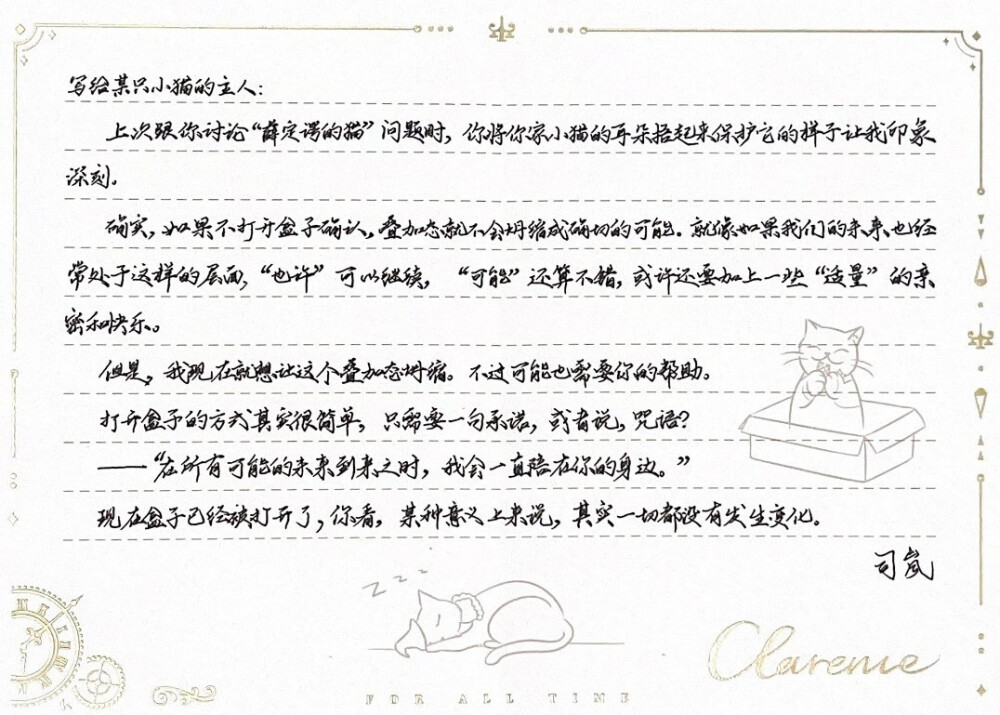 写给某只小猫的主人:
上次跟你讨论“薛定谔的猫”问题时，你将你家小猫的耳朵捂起来保护它的样子让我印象
深刻。
确实，如果不打开盒子确认，叠加态就不会坍缩成确切的可能。就像如果我们的未来也经
常处于这样的层面，“也许”可以继续，“可能”还算不错，或许还要加上一些“适量”的亲
密和快乐。
但是，我现在就想让这个叠加态坍缩。不过可能也需要你的帮助。
打开盒子的方式其实很简单，只需要一句承诺，或者说，咒语？
——“在所有可能的未来到来之时，我会一直陪在你的身边。”
现在盒子已经被打开了，你看，某种意义上来说，其实一切都没有发生变化。
司岚
z z z
Clarence
FOR ALL TIME